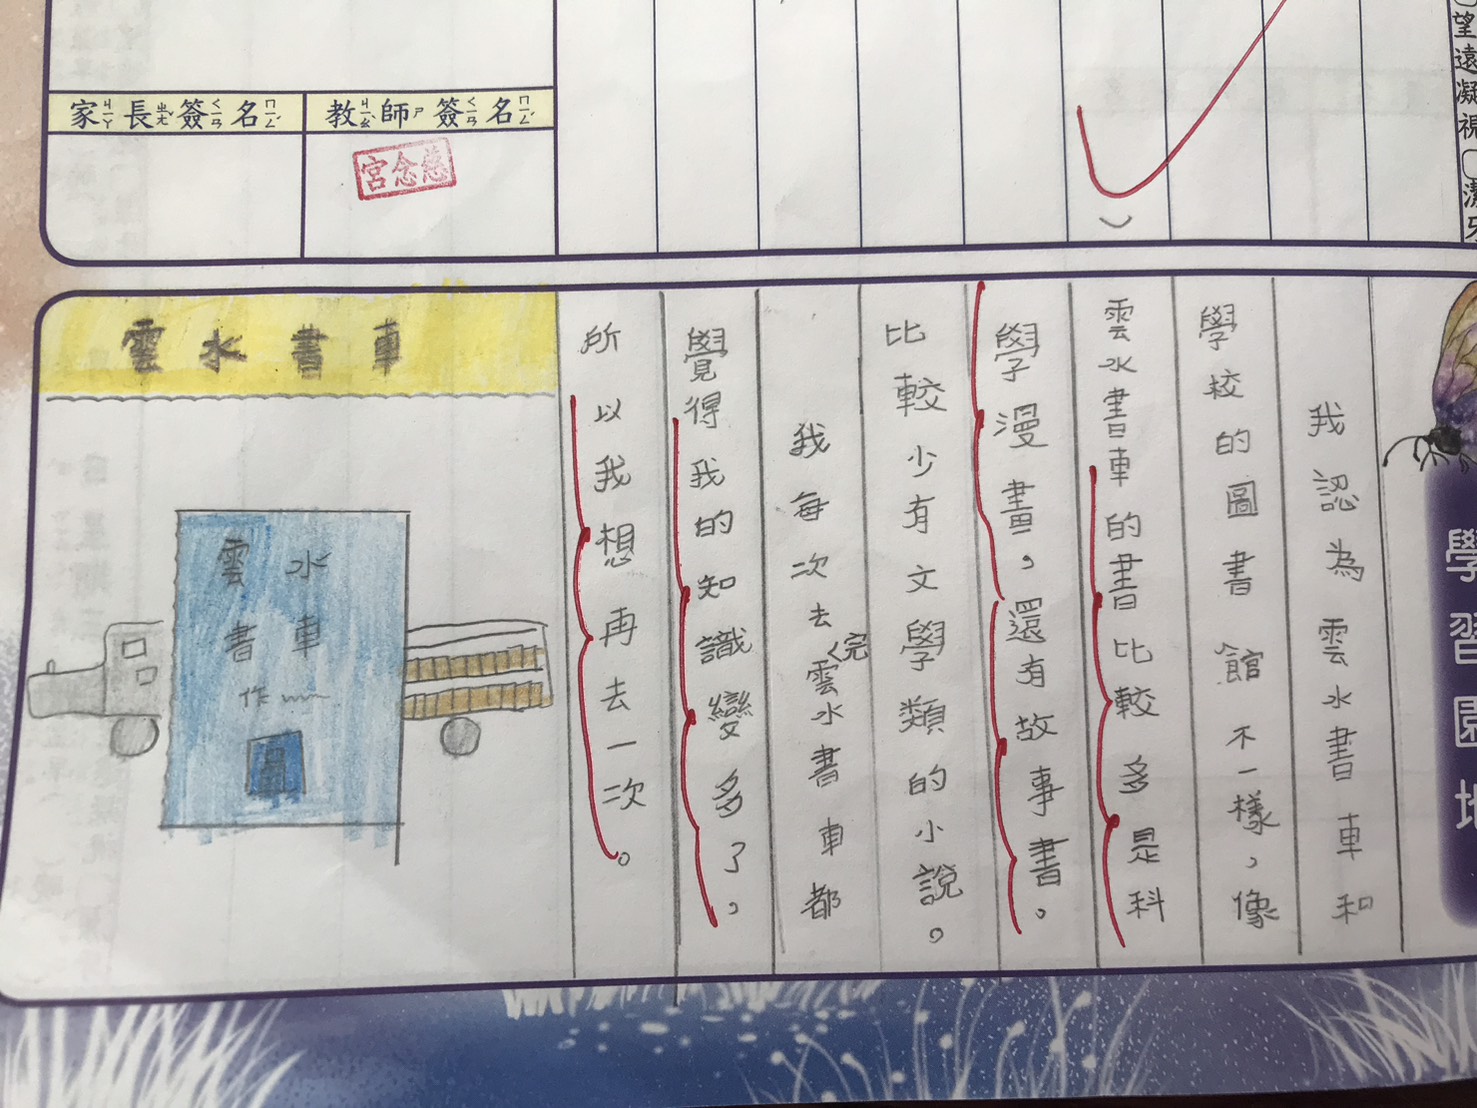 望遠凝視
潔牙
家長簽名
教師簽名
慈念宮
學習園地
我認為雲水書車和
學校的圖書館不一樣，像
雲水書車的書比較多是科
學漫畫，還有故事書。
比較少有文學類的小說。
我每次去完雲水書車都
覺得我的知識變多了，
所以我想再去一次。
雲水書車
雲水
書車
作